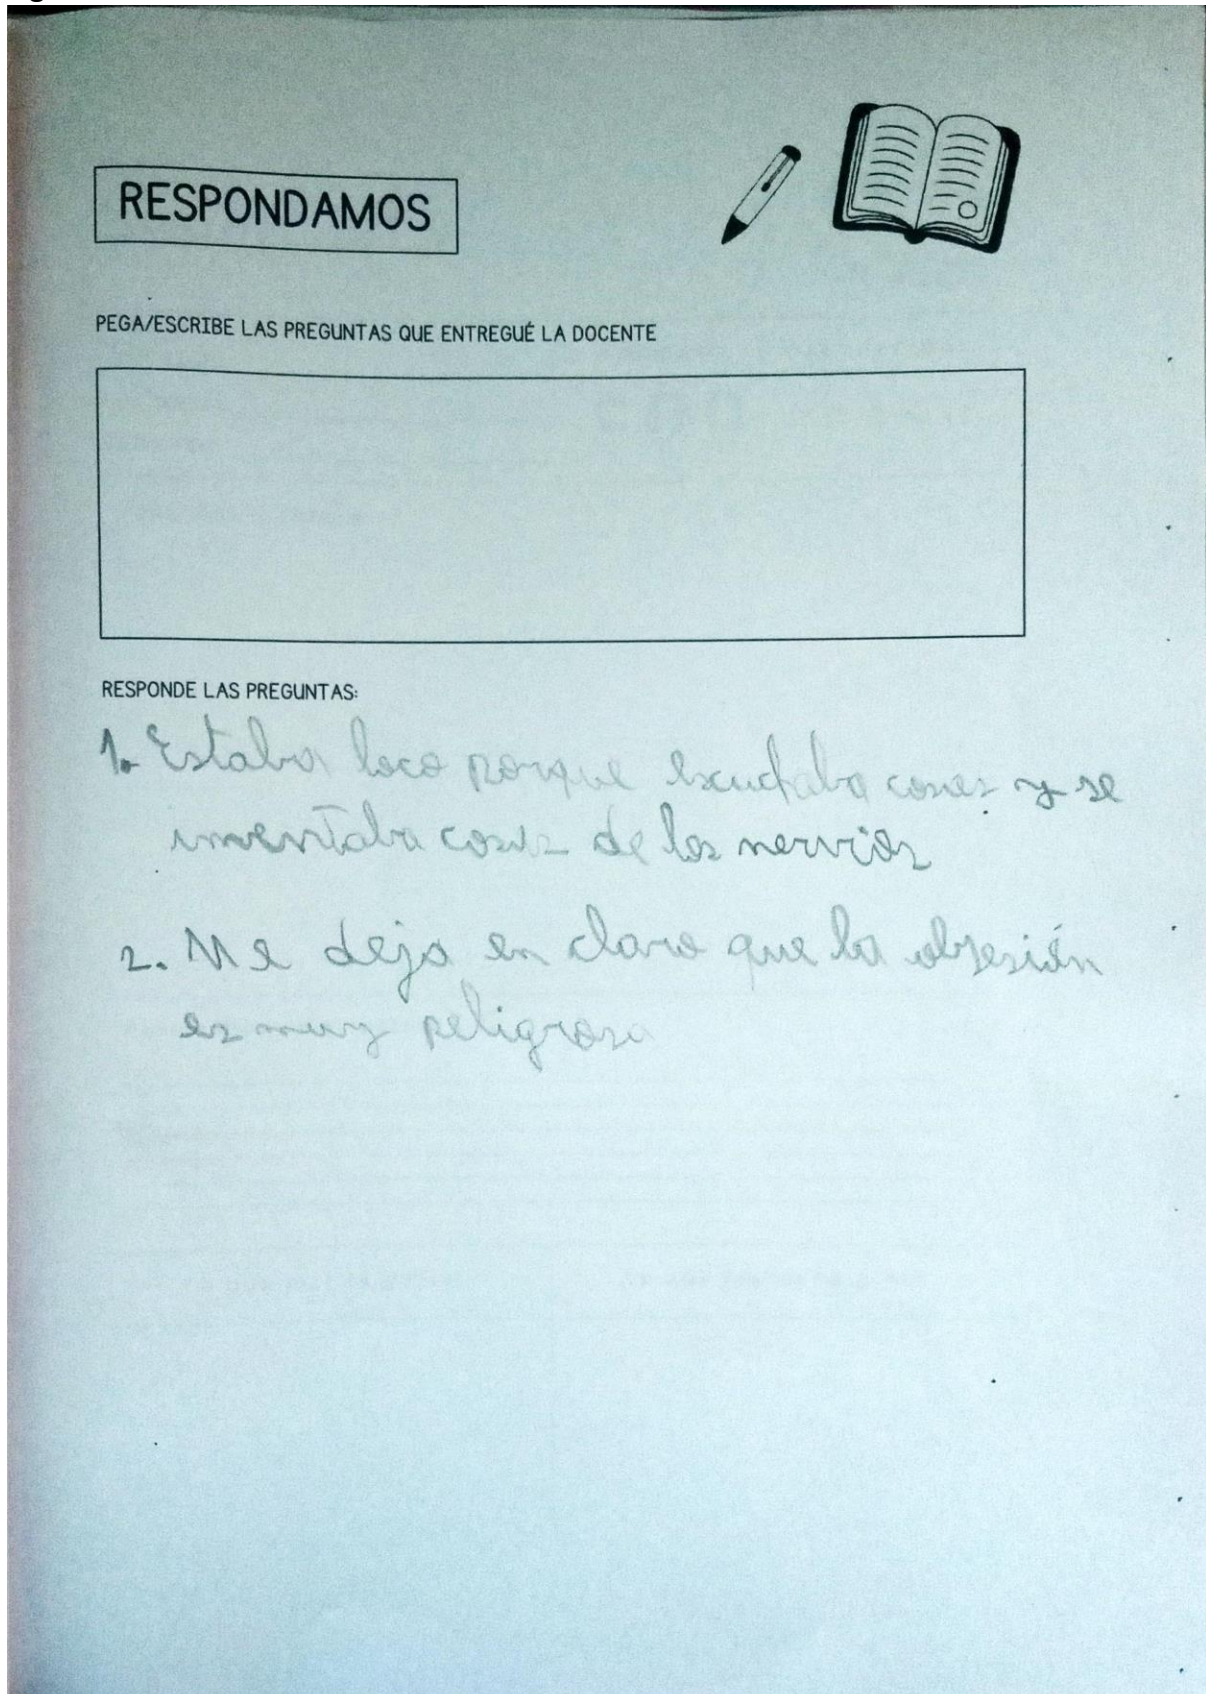 RESPONDAMOS
PEGA/ESCRIBE LAS PREGUNTAS QUE ENTREGUÉ LA DOCENTE
RESPONDE LAS PREGUNTAS:
1. Estaba loco porque escuchaba cosas y se
inventaba cosas de los nervios
2. Me deja en claro que la obsesión
es muy peligrosa